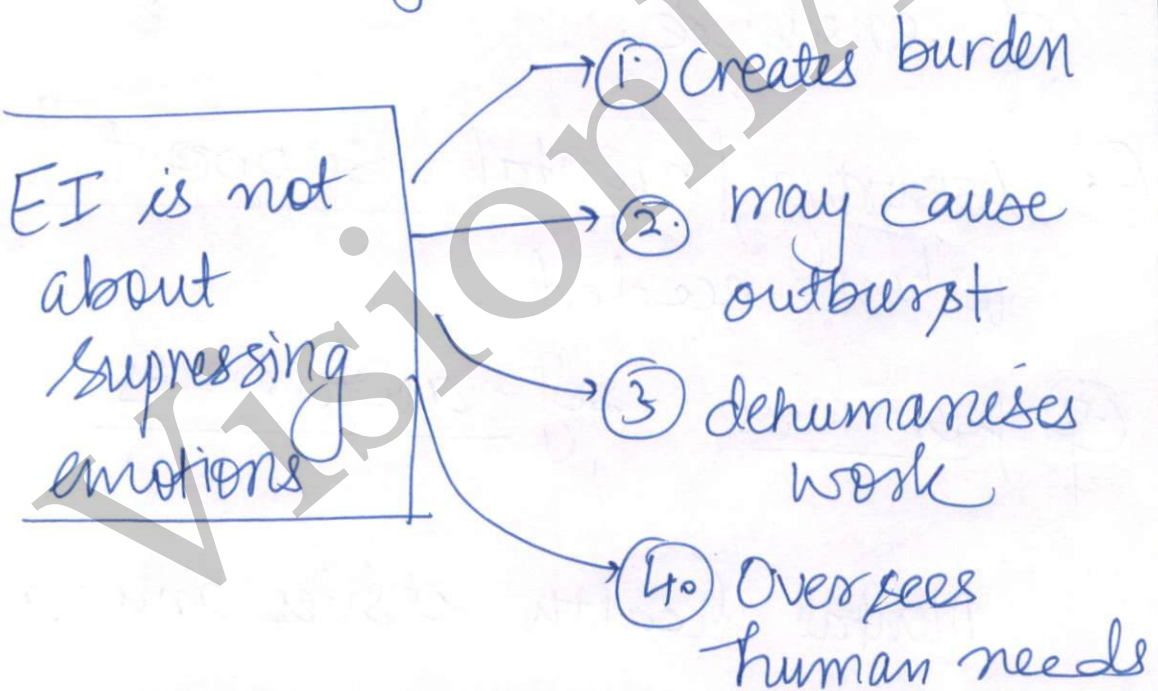 EI is not
about
supressing
emotions
1. Creates burden
2. may cause
outburst
3 dehumanises
work
4. Oversees
human needs
VisionIA